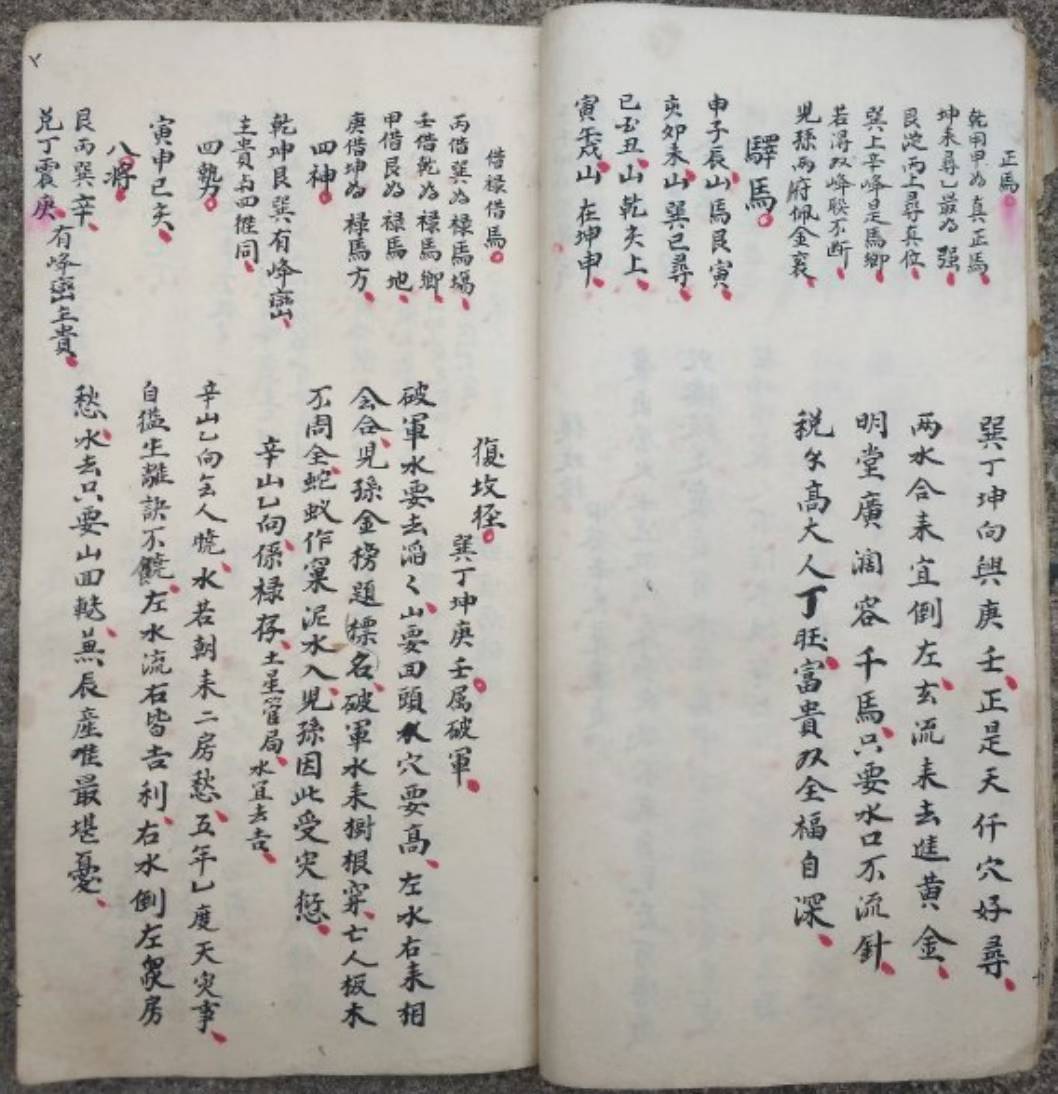 正馬
乾用甲为真正馬
坤耒尋乙最为强
艮边丙上尋真位
巽上辛峰是馬鄉
若淂双峰联不断
児孫两府佩金裏
驛馬
申子辰山馬艮寅
亥卯未山巽巳尋
巳酉丑山乾亥上
寅午戌山在坤申
巽丁坤向與庚壬正是天仟穴好尋
两水合耒宜倒左玄流耒去進黄金
明堂廣濶容千馬只要水口不流針
税尔高大人丁旺富貴双全福自深
借禄借馬
丙借巽为禄馬塲
壬借乾为禄馬鄉
甲借艮为禄馬地
庚借坤为禄馬方
四神
乾坤艮巽有峰巒
主貴与四維同
四勢
寅申巳亥
八将
艮丙巽辛
兑丁震庚有峰巒主貴
復坟径
巽丁坤庚壬属破軍
破軍水要去滔々山要回頭穴要高左水右耒相
会合児孫金榜題標名破軍水耒樹根穿亡人板木
不周全蛇蚁作窠泥水入児孫因此受灾愆
辛山乙向係禄存土星管局水宜去吉
辛山乙向乞人曉水若朝耒二房愁五年乙度天灾事
自缢生離訣不饒左水流右皆吉利右水倒左衆房
愁水去只要山回转無辰産难最堪憂